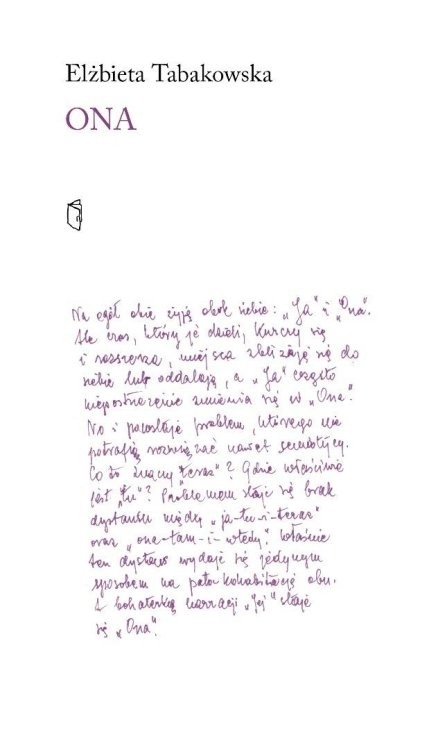 Elżbieta Tabakowska
ONA
Na ogół obie żyją obok siebie: „Ja” i „Ona”.
Ale czas, który je dzieli, kurczy się
i rozszerza, miejsca zbliżają się do
siebie lub oddalają, a „Ja” często
niepostrzeżenie zmienia się w „Ona”.
No i powstaje problem, którego nie
potrafią rozwiązać nawet semiotycy.
Co to znaczy „teraz”? Gdzie właściwie
jest „tu”? Problemem staje się brak
dystansu między „ja-tu-i-teraz”
oraz „ona-tam-i-wtedy”. Właśnie
ten dystans wydaje się jedynym
sposobem na pełną kohabitację obu.
I bohaterką narracji „Jej” staje
się „Ona”.